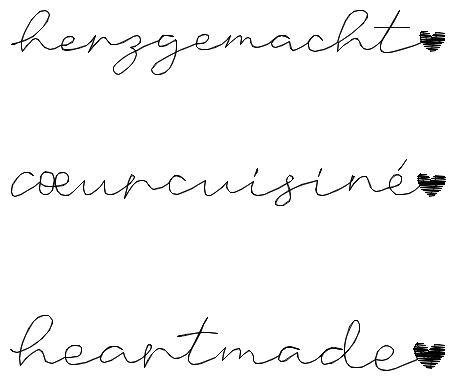 herzgemacht
cœurcuisiné
heartmade